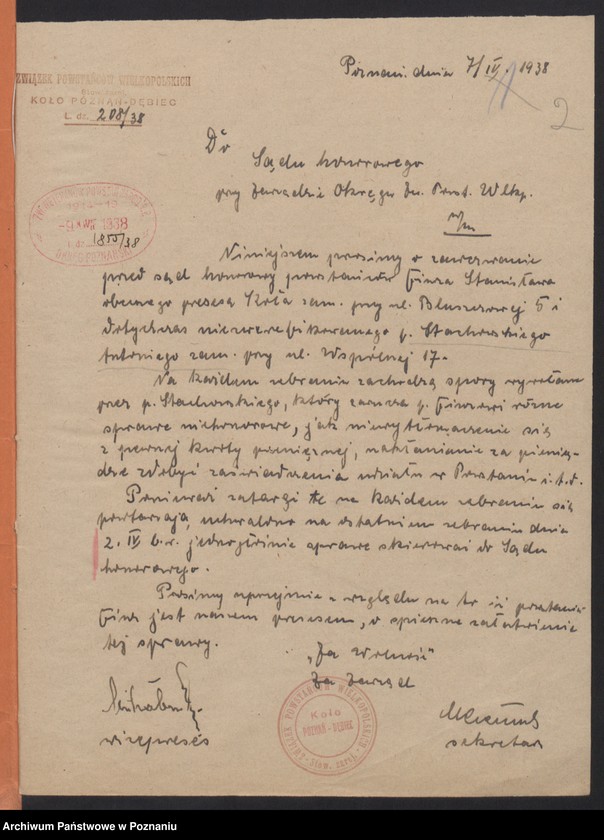 Poznań. dnia 7/IV. 1938
ZWIĄZEK POWSTAŃCÓW WIELKOPOLSKICH
KOŁO POZNAŃ-DĘBIEC
L. dz. 208/38
2
Do
Sądu honorowego
przy Zarządzie Okręgu Zw. Powst. Wlkp.
1914-19
-9. 1938
L. dz. 1855/38
w/m
Niniejszem prosimy o zawezwanie
przed sąd honorowy powstańców Giwza Stanisława
obecnego prezesa Koła zam. przy ul. Bluszczowej 5 i
dotychczas niezweryfikowanego p. Stachowskiego
Antoniego zam. przy ul. Wspólnej 17.-
Na każdem zebraniu zachodzą spory wywołane
przez p. Stachowskiego, który zarzuca p. różne
sprawy niehonorowe, jak niewytłomaczenie się
z pewnej kwoty pieniężnej, nakłanianie za pienią-
dze zdobyć zaświadczenia udziału w Powstaniu i.t.d.
Ponieważ zatargi te na każdem zebraniu się
powtarzają, uchwalono na ostatniem zebraniu dnia
2. IV b.r. jednogłośnie sprawę skierować do Sądu
honorowego.
Prosimy uprzejmie z względu na to iż powstaniec
jest naszem prezesem, o spieszne załatwienie
tej sprawy.
"Za Wolność"
Za Zarząd
wiceprezes
sekretarz
ZWIĄZEK POWSTAŃCÓW WIELKOPOLSKICH
Koło
POZNAŃ - DĘBIEC
Stow. zarej.
Archiwum Państwowe w Poznaniu